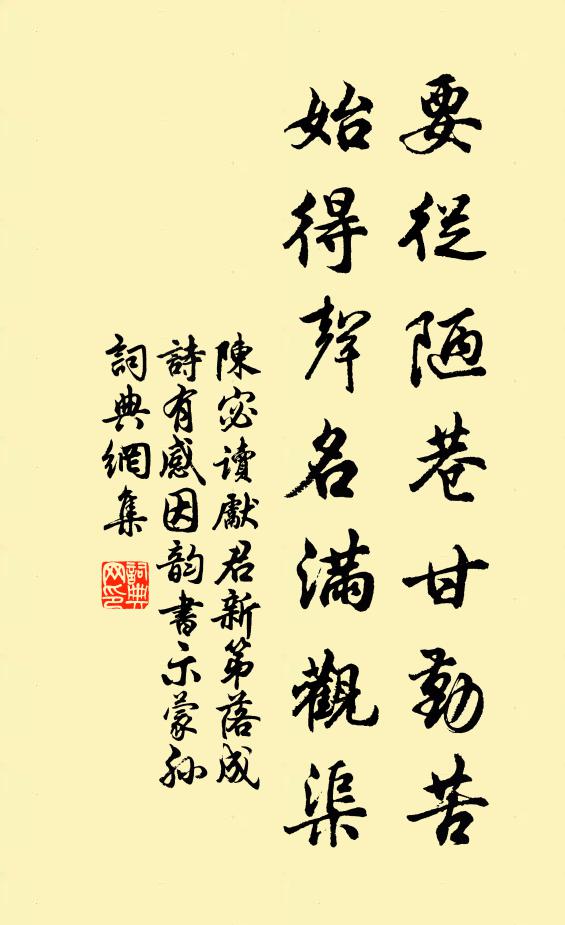 要從陋巷甘勤苦
始得聲名滿觀渠
陳宓讀獻君新第落成
詩有感因韵書示蒙孫
詞典網集
詞典
网印